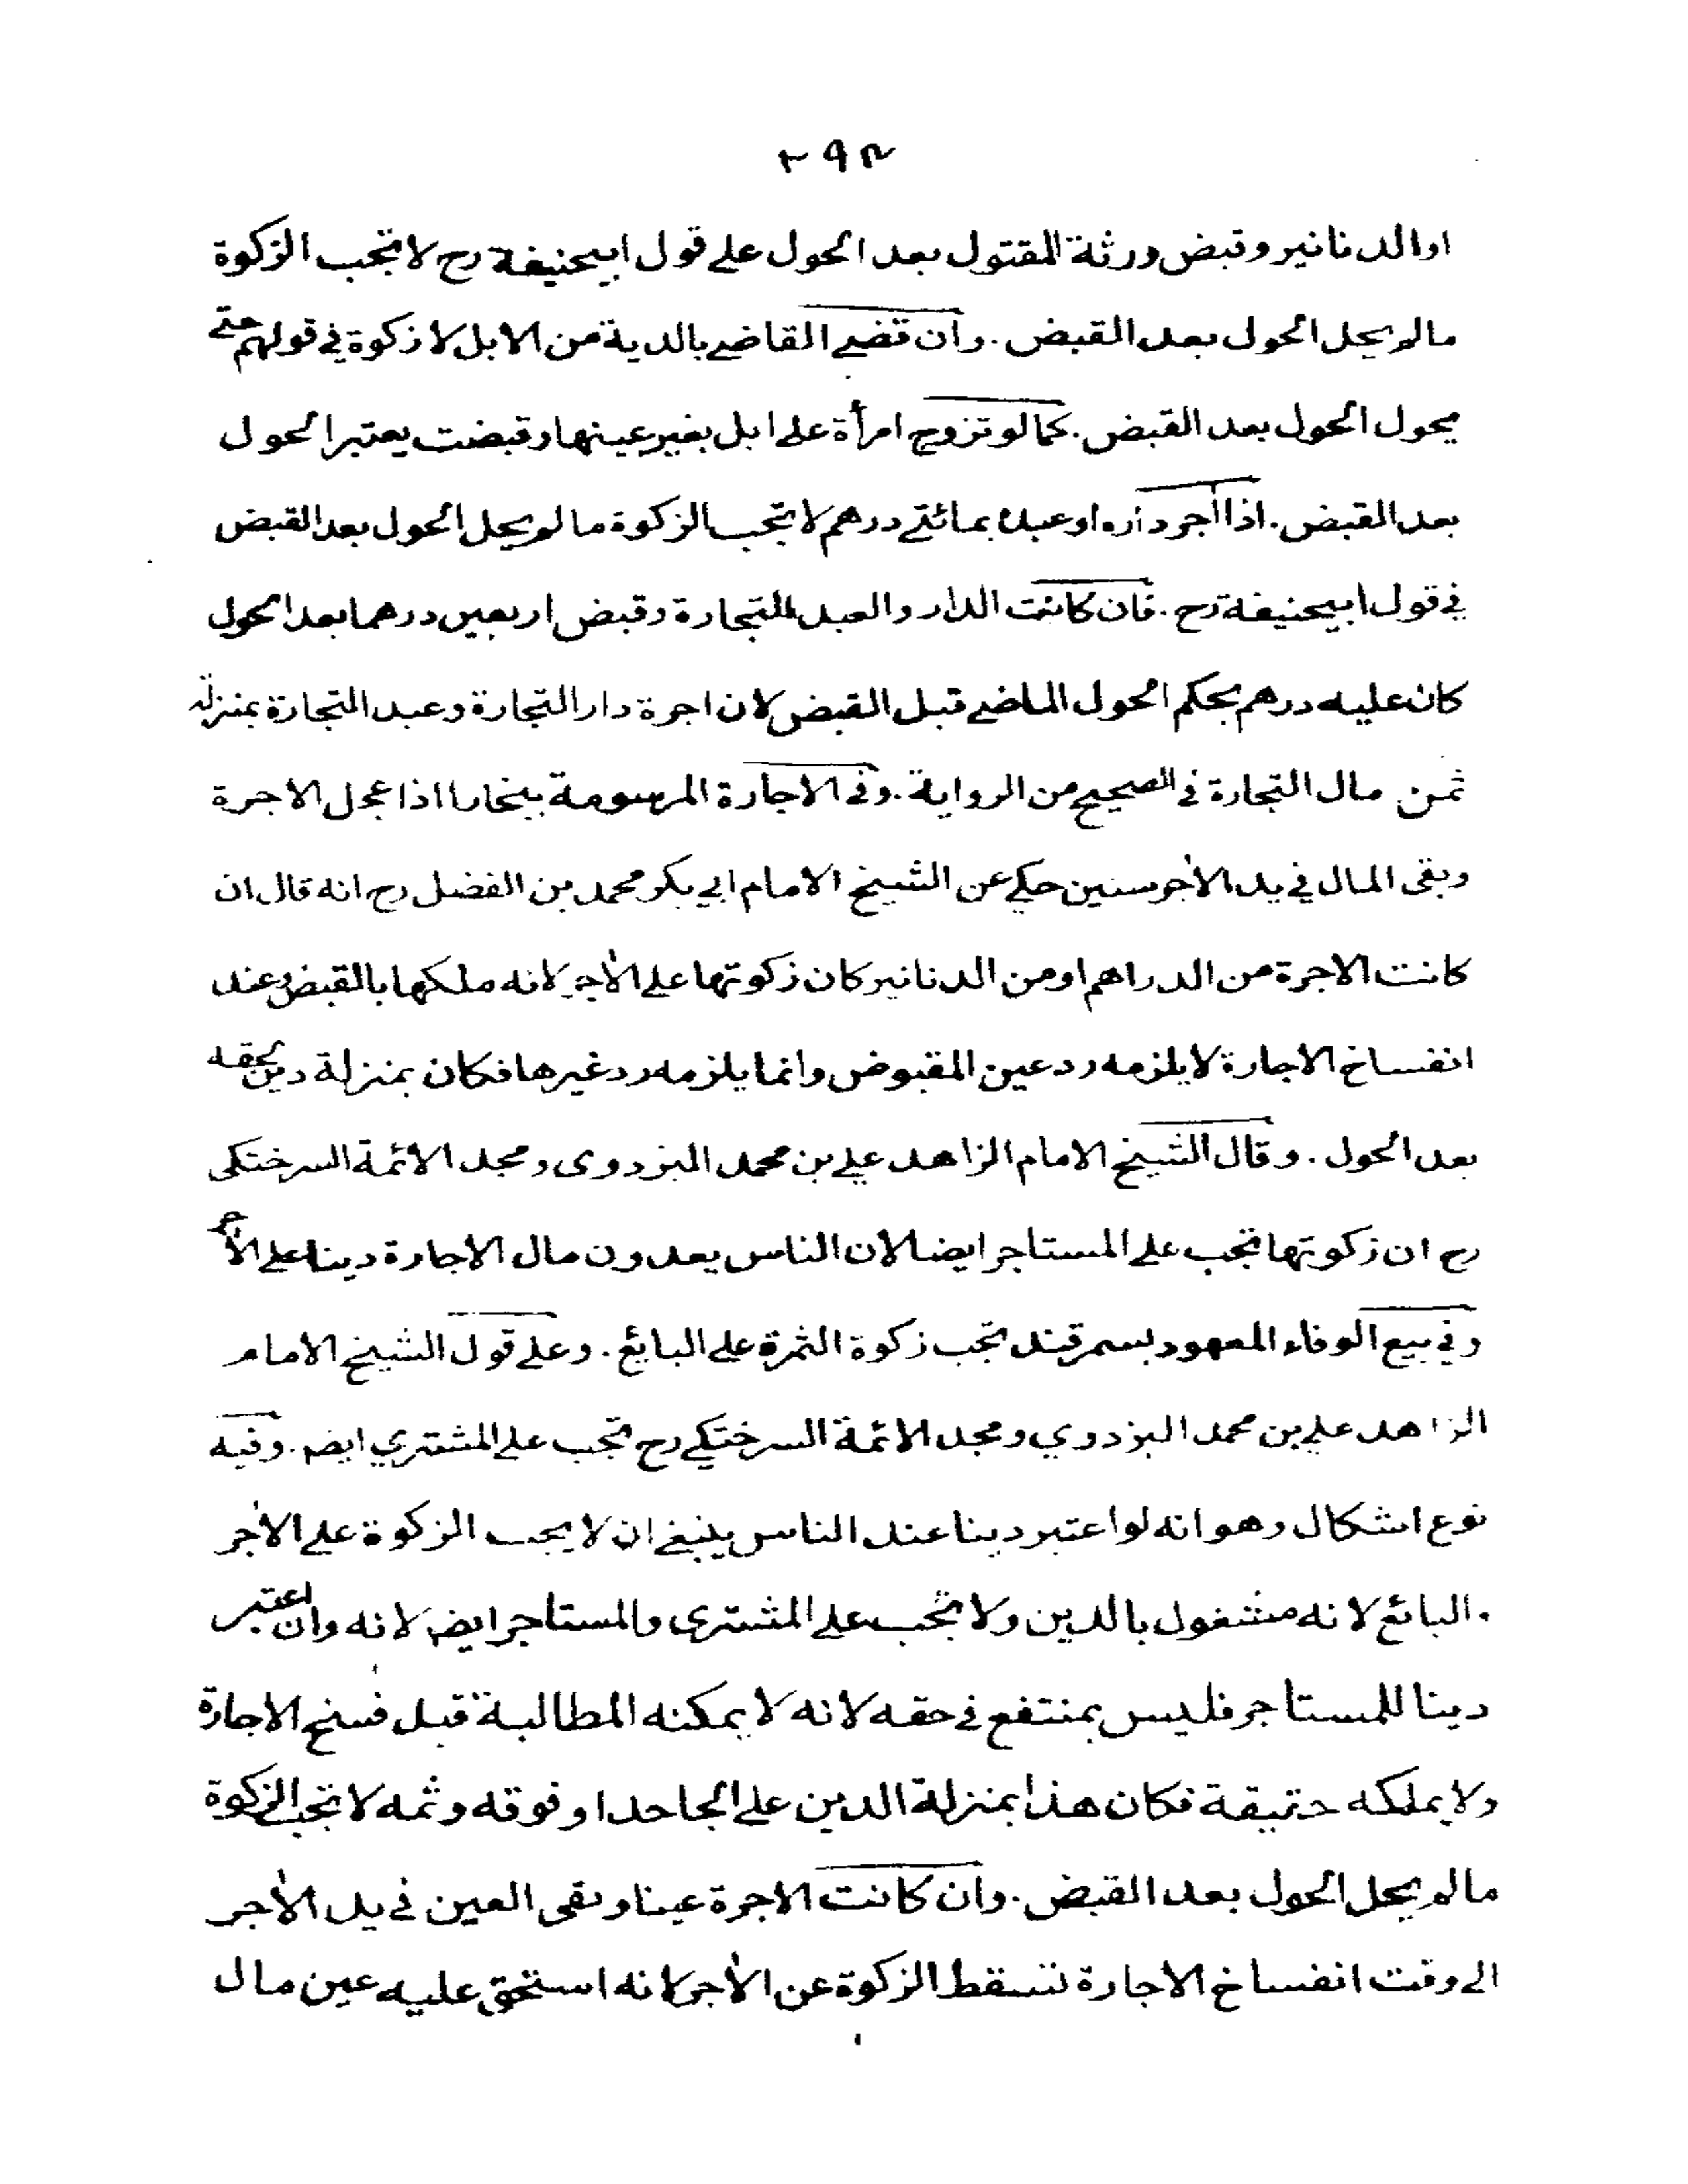 ٢٩٣
او الدنانير وقبض ورثة المقتول بعد الحول على قول ابيحنيفة رح لا تجب الزكوة
مالم يحل الحول بعد القبض . وان قضى القاضي بالدية من الابل لا زكوة في قولهم حتى
يحول الحول بعد القبض . كما لو تزوج امرأة على ابل بغير عينها وقبضت يعتبر الحول
بعد القبض . اذا اجر داره او عبده بمائتي درهم لا تجب الزكوة ما لم يحل الحول بعد القبض
في قول ابيحنيفة رح . فان كانت الدار والعبد للتجارة وقبض اربعين درهما بعد الحول
كان عليه درهم بحكم الحول الماضي قبل القبض لان اجرة دار التجارة وعبد التجارة بمنزلة
ثمن مال التجارة في الصحيح من الرواية . وفي الاجارة المرسومة ببخارا اذا عجل الاجرة
وبقى المال في يد الآجر سنين حكي عن الشيخ الامام ابي بكر محمد بن الفضل رح انه قال ان
كانت الاجرة من الدراهم او من الدنانير كان زكوتها على الآجر لانه ملكها بالقبض وعند
انفساخ الاجارة لا يلزمه رد عين المقبوض وانما يلزمه رد غيرها فكان بمنزلة دين لحقه
بعد الحول . وقال الشيخ الامام الزاهد علي بن محمد البزدوى ومجد الائمة السرختكى
رح ان زكوتها تجب على المستاجر ايضا لان الناس يعدون مال الاجارة دينا على الآجر
وفي بيع الوفاء المعهود بسمرقند تجب زكوة الثمرة على البايع . وعلى قول الشيخ الامام
الزاهد علي بن محمد البزدوي ومجد الائمة السرختكي رح تجب على المشتري ايضم . وفيه
نوع اشكال وهو انه لو اعتبر دينا عند الناس ينبغي ان لا يجب الزكوة على الآجر
. البائع لانه مشغول بالدين ولا تجب على المشترى والمستاجر ايضم لانه وان اعتبر
دينا للمستاجر فليس بمنتفع في حقه لانه لا يمكنه المطالبة قبل فسخ الاجارة
ولا يملكه حقيقة فكان هذا بمنزلة الدين على الجاحد او فوقه وثمه لا تجب الزكوة
مالم يحل الحول بعد القبض . وان كانت الاجرة عينا وبقى العين في يد الآجر
الى وقت انفساخ الاجارة تسقط الزكوة عن الآجر لانه استحق عليه عين مال